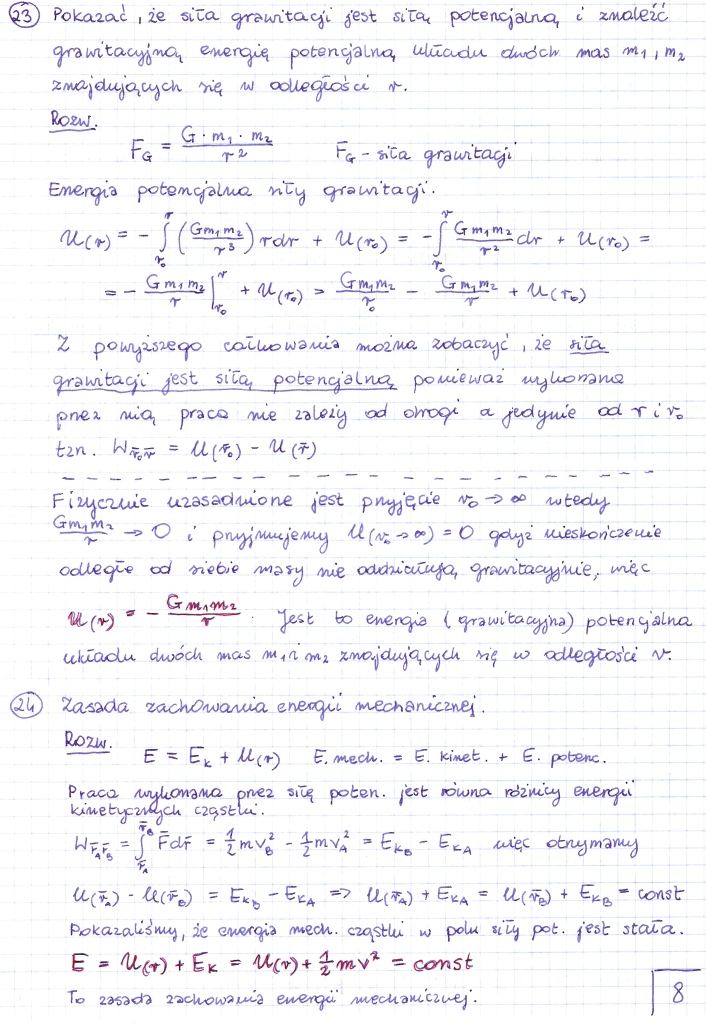 23 Pokazać, że siła grawitacji jest siłą potencjalną i znaleźć
grawitacyjną energię potencjalną układu dwóch mas m₁, m₂
znajdujących się w odległości r.
Rozw.
F_G = G · m₁ · m₂ / r² F_G - siła grawitacji
Energia potencjalna siły grawitacji.
U(r) = - ∫_{r₀}^{r} (Gm₁m₂ / r³) r dr + U(r₀) = - ∫_{r₀}^{r} Gm₁m₂ / r² dr + U(r₀) =
= - Gm₁m₂ / r |_{r₀}^{r} + U(r₀) = Gm₁m₂ / r₀ - Gm₁m₂ / r + U(r₀)
Z powyższego całkowania można zobaczyć, że siła
grawitacji jest siłą potencjalną ponieważ wykonana
przez nią praca nie zależy od drogi a jedynie od r i r₀
tzn. W_{r̄₀r̄} = U(r̄₀) - U(r̄)
Fizycznie uzasadnione jest przyjęcie r₀ → ∞ wtedy
Gm₁m₂ / r → 0 i przyjmujemy U(r₀ → ∞) = 0 gdyż nieskończenie
odległe od siebie masy nie oddziałują grawitacyjnie, więc
U(r) = - Gm₁m₂ / r. Jest to energia (grawitacyjna) potencjalna
układu dwóch mas m₁ i m₂ znajdujących się w odległości r.
24 Zasada zachowania energii mechanicznej.
Rozw.
E = E_k + U(r) E. mech. = E. kinet. + E. potenc.
Praca wykonana przez siłę poten. jest równa różnicy energii
kinetycznych cząstki.
W_{r̄_A r̄_B} = ∫_{r̄_A}^{r̄_B} F̄dr̄ = 1/2 mv_B² - 1/2 mv_A² = E_{kB} - E_{kA} więc otrzymamy
U(r̄_A) - U(r̄_B) = E_{kB} - E_{kA} => U(r̄_A) + E_{kA} = U(r̄_B) + E_{kB} = const
Pokazaliśmy, że energia mech. cząstki w polu siły pot. jest stała.
E = U(r) + E_k = U(r) + 1/2 mv² = const
To zasada zachowania energii mechanicznej.
8